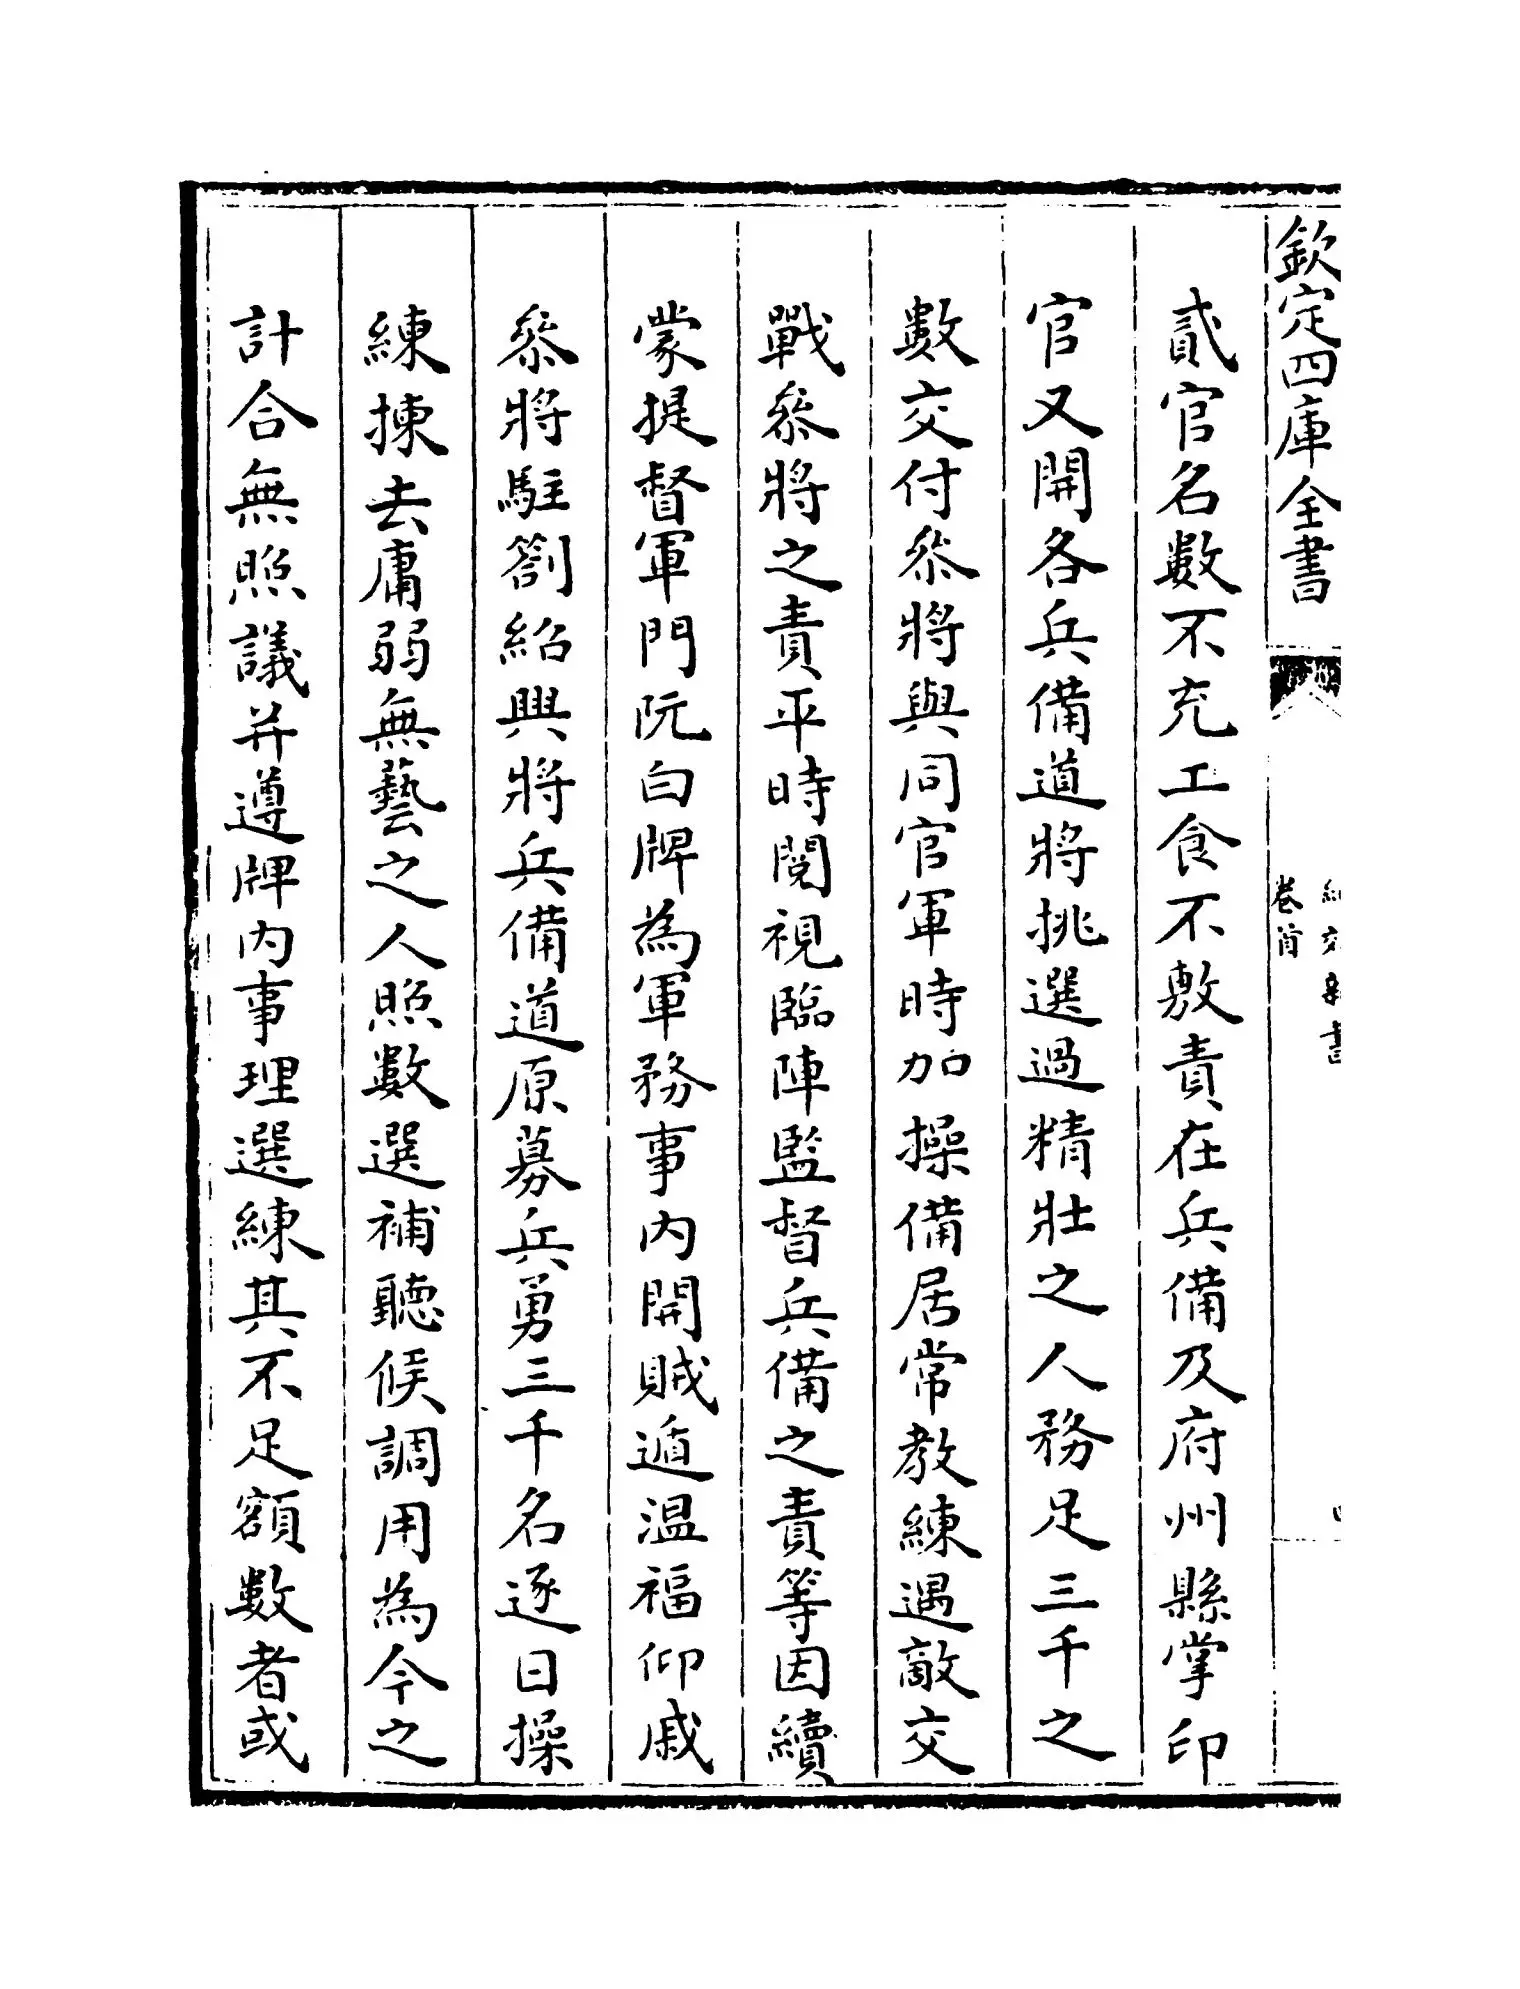 欽定四庫全書
卷首
貳官名數不充工食不敷責在兵備及府州縣掌印
官又開各兵備道將挑選過精壯之人務足三千之
數交付叅將與同官軍時加操備居常教練遇敵交
戰叅將之責平時閱視臨陣監督兵備之責等因續
蒙提督軍門阮白牌為軍務事内開賊遁温福仰戚
叅將駐劄紹興將兵備道原募兵勇三千名逐日操
練揀去庸弱無藝之人照數選補聽候調用為今之
計合無照議并遵牌内事理選練其不足額數者或